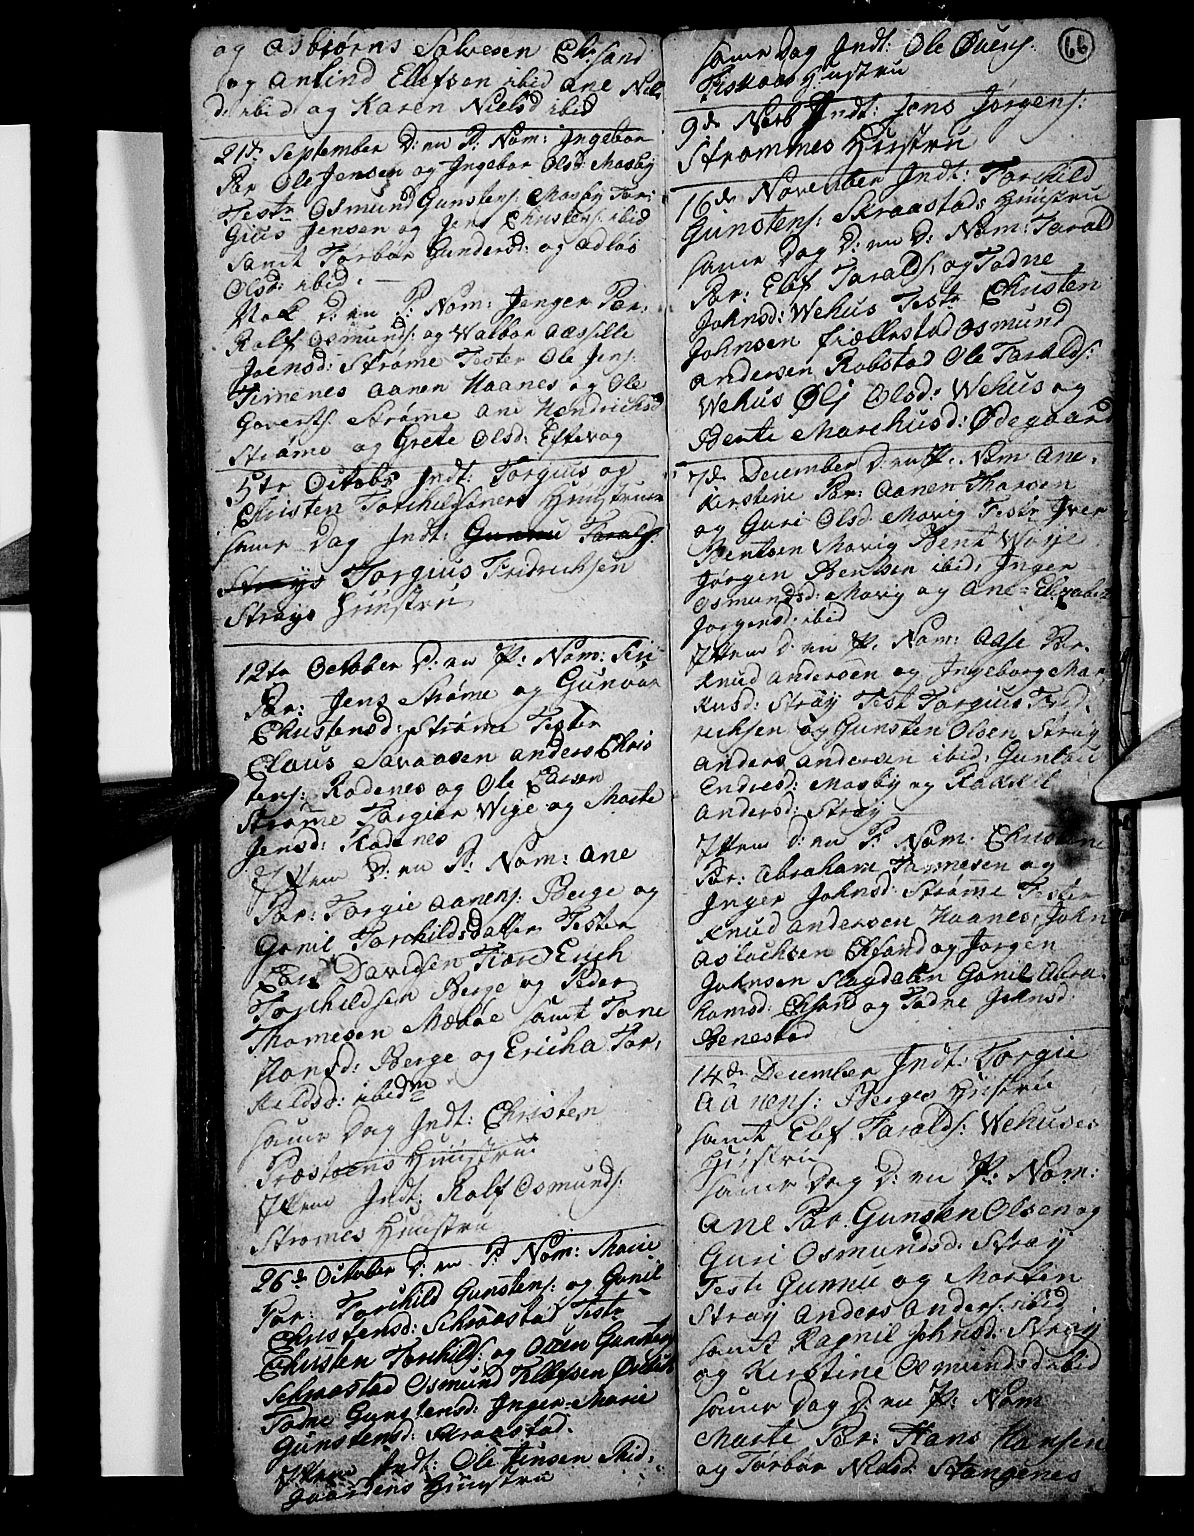 og Asbiørns Salvesen Chr:sand
og Anlind Ellefsen ibid Ane Niels
D: ibid og Karen Nielsd ibid
21de September D: en P: Nom: Ingebor
Par Ole Jensen og Ingebor Olsd: Mosby
Testr Osmund Gunstens: Mosby Tor:
gius Jensen og Jens Christens: ibid
samt Torbor Gundersd: og Adlos
Olsd: ibid.
Nok D: en P: Nom: Jenger Par.
Rolf Osmunds: og Walbor Aassille
Joensd: Strøme Tester Ole Jens:
Timenes Aanen Haanes og Ole
Goverts: Strøme Ane Hendrichsd
Strøme og Grete Olsd: Eftevog
5te Octobr Indt: Torgius og
Christen Torchilsøners Hustruer
samme Dag Indt: Gunnu Tarals:
Strays Torgius Fridrichsen
Strays Hustru
12te October D: en P: Nom: Siri
Par: Jens Strøme og Gunvor
Christensd: Strøme Tester
Claus Savaasen Anders Chris
tens: Kodenes og Ole Larsen
Strøme Torgier Wige og Marte
Jensd: Kodenes
Item D: en P: Nom: Ane
Par: Torgie Aanens: Berge og
Gonil Torchildsdatter Tester
Davidsen Erich
Torchildsen Berge og Peder
Thomesen Mæbøe samt Tone
Hansd: Berge og Ericha Tor:
kildsd: ibidm
samme Dag Indt: Christen
Præstøens Huustrue
Item Indt: Rolf Osmunds:
Strømes Huustru
26de October D: en P: Nom: Marie
Par: Torchild Gunstens: og Gonil
Christensd: Schraastad Testr
Christen Torchilds: og Otten Gunstens
Schraastad Osmund Tellefsen
Todne Gunstensd: Inger Marie
Gunstensd: Skraastad.
Item Indt: Ole Jensen Mid:
gaardens Huustru
66
samme Dag Indt: Ole Øvens:
Fiskaaes Huustru
9de Novb Indt: Jens Jørgens:
Strømmes Huustru
16de November Indt: Torchild
Gunstens: Skraastads Huustru
samme Dag D: en D: Nom: Tarald
Par: Elef Taralds: og Todne
Johnsd: Wehus Testr Christen
Johnsen fiællestad Osmund
Andersen Robstad Ole Taralds:
Wehus Olj Olsd: Wehus og
Berte Marchusd: Ødegaard
7de December D: en P. Nom Ane.
Kirstine Par: Aanen Tharsen
og Guri Olsd: Movig Testr Iver
Bentsen Movig Bent Woije
Jørgen Bentsen ibid, Inger
Osmundsd: Movig og Ane=Elisabet
Jørgensd: ibid
Item D: en P. Nom: Aase Par.
Knud Andersen og Ingeborg Mar
kusd: Strøy Test Torguis Frid:
richsen og Gunsten Olsen Strøy
Anders Andersen ibid, Gunlou
Endresd: Mosby og Rakkel
Andersd: Strøy
Item D: en P: Nom. Christine
Par: Abraham Tønnesen og
Inger Johnsd: Strøme Tester
Knud Andersen Haanes, John
Aslachsen Chsand og Jørgen
Johnsen Slagdalen Gonil Abra
hamsd: Chsand og Todne Johnsd:
Benestad
14de December Indt: Torgie
Aanens: Berges Hustru
samt Elef Taralds: Wehuses
Hustru
samme Dag D: en P: Nom:
Ane Par. Gunsten Olsen og
Guri Osmundsd: Strøy
Teste Gunnu og Morten
Strøy Anders Anders: ibid
samt Ragnil Johnsd: Strøy
og Kirstine Osmundsd: ibid
samme Dag D: en P: Nom
Marte Par: Hans Hansen
og Torbor Nielsd Stangenes